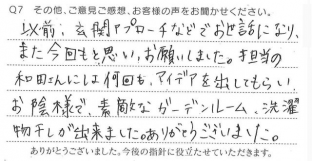 Q7 その他、ご意見ご感想、お客様の声をお聞かせください。
以前、玄関アプローチなどでお世話になり、
また今回もと思い、お願いしました。担当の
和田さんには何回も、アイデアを出してもらい、
お陰様で、素敵なガーデンルーム、洗濯
物干しが出来ました。ありがとうございました。
ありがとうございました。今後の指針に役立たせていただきます。